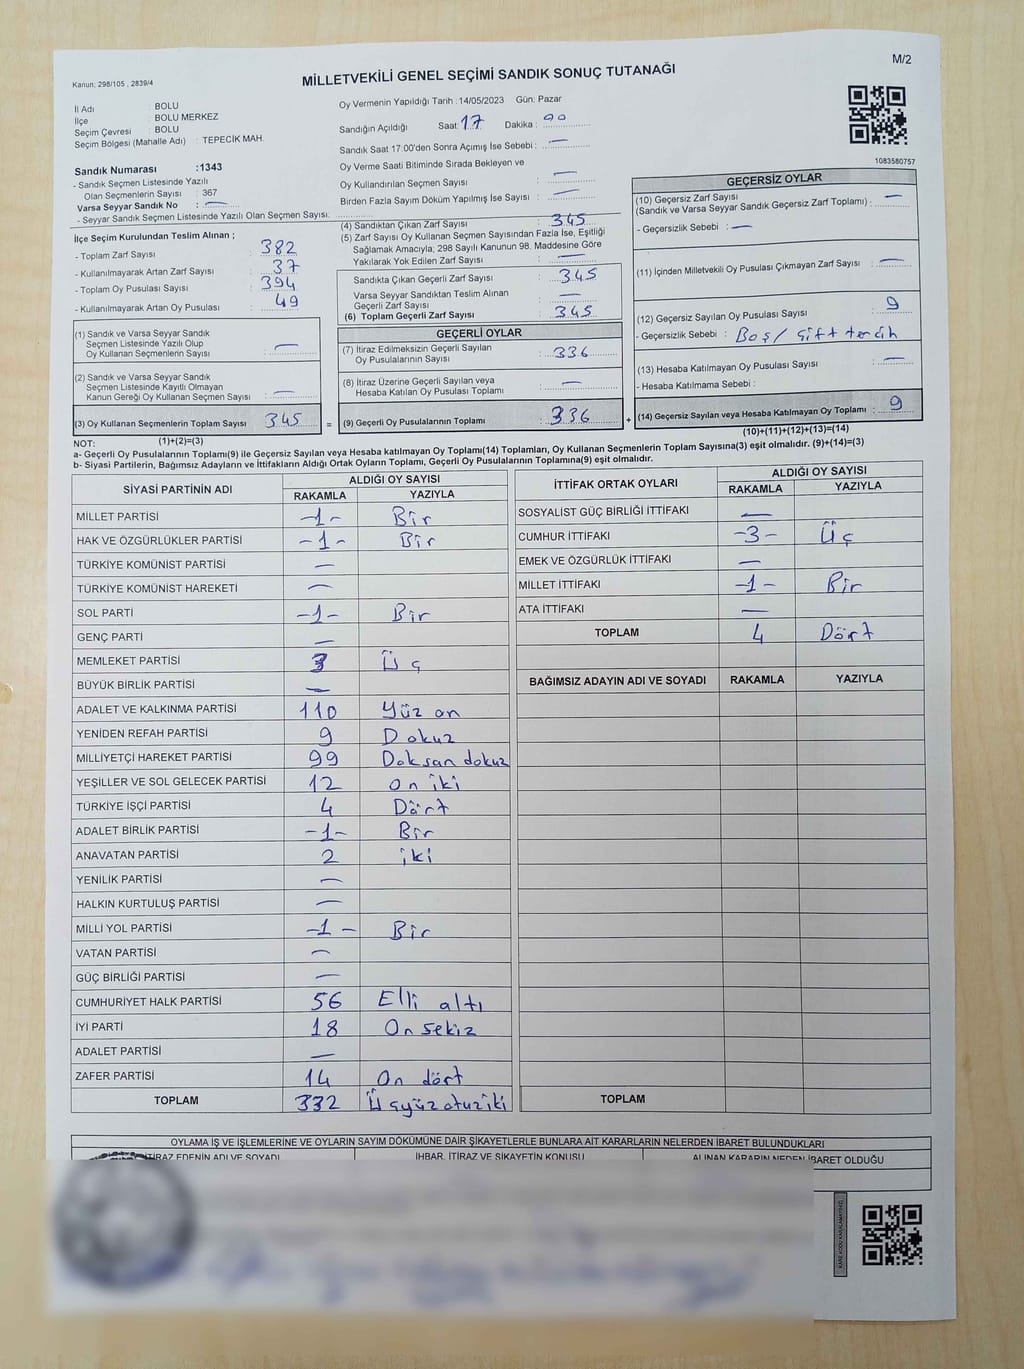 Kanun: 298/105 , 2839/4
MİLLETVEKİLİ GENEL SEÇİMİ SANDIK SONUÇ TUTANAĞI
M/2
İl Adı : BOLU
İlçe : BOLU MERKEZ
Seçim Çevresi : BOLU
Seçim Bölgesi (Mahalle Adı) : TEPECİK MAH.
Sandık Numarası :1343
- Sandık Seçmen Listesinde Yazılı
Olan Seçmenlerin Sayısı : 367
Varsa Seyyar Sandık No : —
- Seyyar Sandık Seçmen Listesinde Yazılı Olan Seçmen Sayısı:
İlçe Seçim Kurulundan Teslim Alınan ;
- Toplam Zarf Sayısı : 382
- Kullanılmayarak Artan Zarf Sayısı : 37
- Toplam Oy Pusulası Sayısı : 394
- Kullanılmayarak Artan Oy Pusulası : 49
(1) Sandık ve Varsa Seyyar Sandık
Seçmen Listesinde Yazılı Olup
Oy Kullanan Seçmenlerin Sayısı : —
(2) Sandık ve Varsa Seyyar Sandık
Seçmen Listesinde Kayıtlı Olmayan
Kanun Gereği Oy Kullanan Seçmen Sayısı : —
(3) Oy Kullanan Seçmenlerin Toplam Sayısı : 345
Oy Vermenin Yapıldığı Tarih :14/05/2023 Gün: Pazar
Sandığın Açıldığı Saat: 17 Dakika : 00
Sandık Saat 17:00'den Sonra Açımış İse Sebebi : —
Oy Verme Saati Bitiminde Sırada Bekleyen ve
Oy Kullandırılan Seçmen Sayısı : —
Birden Fazla Sayım Döküm Yapılmış İse Sayısı : —
(4) Sandıktan Çıkan Zarf Sayısı : 345
(5) Zarf Sayısı Oy Kullanan Seçmen Sayısından Fazla İse, Eşitliği
Sağlamak Amacıyla; 298 Sayılı Kanunun 98. Maddesine Göre
Yakılarak Yok Edilen Zarf Sayısı : —
Sandıkta Çıkan Geçerli Zarf Sayısı : 345
Varsa Seyyar Sandıktan Teslim Alınan
Geçerli Zarf Sayısı : —
(6) Toplam Geçerli Zarf Sayısı : 345
GEÇERLİ OYLAR
(7) İtiraz Edilmeksizin Geçerli Sayılan
Oy Pusulalarının Sayısı : 336
(8) İtiraz Üzerine Geçerli Sayılan veya
Hesaba Katılan Oy Pusulası Toplamı : —
= (9) Geçerli Oy Pusulalarının Toplamı : 336 +
1083580757
GEÇERSİZ OYLAR
(10) Geçersiz Zarf Sayısı
(Sandık ve Varsa Seyyar Sandık Geçersiz Zarf Toplamı) : —
- Geçersizlik Sebebi : —
(11) İçinden Milletvekili Oy Pusulası Çıkmayan Zarf Sayısı : —
(12) Geçersiz Sayılan Oy Pusulası Sayısı : 9
- Geçersizlik Sebebi : Boş/ çift tercih
(13) Hesaba Katılmayan Oy Pusulası Sayısı : —
- Hesaba Katılmama Sebebi :
(14) Geçersiz Sayılan veya Hesaba Katılmayan Oy Toplamı : 9
NOT: (1)+(2)=(3) (10)+(11)+(12)+(13)=(14)
a- Geçerli Oy Pusulalarının Toplamı(9) ile Geçersiz Sayılan veya Hesaba katılmayan Oy Toplamı(14) Toplamları, Oy Kullanan Seçmenlerin Toplam Sayısına(3) eşit olmalıdır. (9)+(14)=(3)
b- Siyasi Partilerin, Bağımsız Adayların ve İttifakların Aldığı Ortak Oyların Toplamı, Geçerli Oy Pusulalarının Toplamına(9) eşit olmalıdır.
SİYASİ PARTİNİN ADI ALDIĞI OY SAYISI
RAKAMLA YAZIYLA
MİLLET PARTİSİ -1- Bir
HAK VE ÖZGÜRLÜKLER PARTİSİ -1- Bir
TÜRKİYE KOMÜNİST PARTİSİ —
TÜRKİYE KOMÜNİST HAREKETİ —
SOL PARTİ -1- Bir
GENÇ PARTİ —
MEMLEKET PARTİSİ 3 Üç
BÜYÜK BİRLİK PARTİSİ —
ADALET VE KALKINMA PARTİSİ 110 Yüz on
YENİDEN REFAH PARTİSİ 9 Dokuz
MİLLİYETÇİ HAREKET PARTİSİ 99 Doksan dokuz
YEŞİLLER VE SOL GELECEK PARTİSİ 12 on iki
TÜRKİYE İŞÇİ PARTİSİ 4 Dört
ADALET BİRLİK PARTİSİ -1- Bir
ANAVATAN PARTİSİ 2 iki
YENİLİK PARTİSİ —
HALKIN KURTULUŞ PARTİSİ —
MİLLİ YOL PARTİSİ -1- Bir
VATAN PARTİSİ —
GÜÇ BİRLİĞİ PARTİSİ —
CUMHURİYET HALK PARTİSİ 56 Elli altı
İYİ PARTİ 18 On sekiz
ADALET PARTİSİ —
ZAFER PARTİSİ 14 On dört
TOPLAM 332 Üçyüzotuziki
İTTİFAK ORTAK OYLARI ALDIĞI OY SAYISI
RAKAMLA YAZIYLA
SOSYALİST GÜÇ BİRLİĞİ İTTİFAKI —
CUMHUR İTTİFAKI -3- Üç
EMEK VE ÖZGÜRLÜK İTTİFAKI —
MİLLET İTTİFAKI -1- Bir
ATA İTTİFAKI —
TOPLAM 4 Dört
BAĞIMSIZ ADAYIN ADI VE SOYADI RAKAMLA YAZIYLA
TOPLAM
OYLAMA İŞ VE İŞLEMLERİNE VE OYLARIN SAYIM DÖKÜMÜNE DAİR ŞİKAYETLERLE BUNLARA AİT KARARLARIN NELERDEN İBARET BULUNDUKLARI
İTİRAZ EDENİN ADI VE SOYADI İHBAR, İTİRAZ VE ŞİKAYETİN KONUSU ALINAN KARARIN NEDEN İBARET OLDUĞU